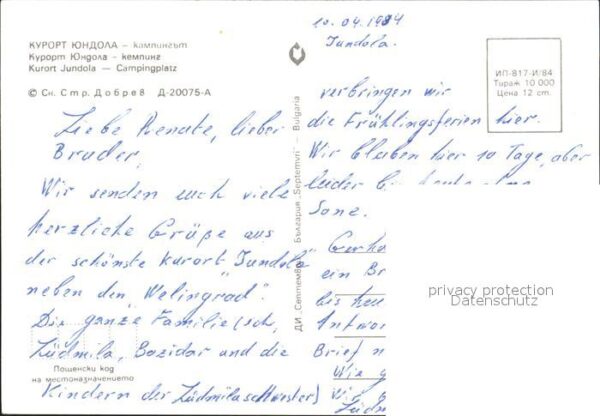 КУРОРТ ЮНДОЛА – кампингът
Курорт Юндола – кемпинг
Kurort Jundola — Campingplatz
© Сн. Стр. Добрев Д-20075-А
Liebe Renate, lieber
Bruder,
Wir senden euch viele
herzliche Grüße aus
der schönste Kurort "Jundola"
neben den "Welingrad".
Die ganze Familie (ich,
Lüdmila, Bozidar und die
Kindern der Lüdmilaschwester)
Пощенски код
на местоназначението
ДИ „Септември" България „Septemvri" — Bulgaria
10.04.1984
Jundola.
ИП-817-И/84
Тираж 10 000
Цена 12 ст.
verbringen wir
die Frühlingsferien hier.
Wir bleiben hier 10 Tage, aber
leider
Sone.
ein Br
bis heu
Antwor
Brief n
Wir g
Wir
Lüdm
privacy protection
Datenschutz